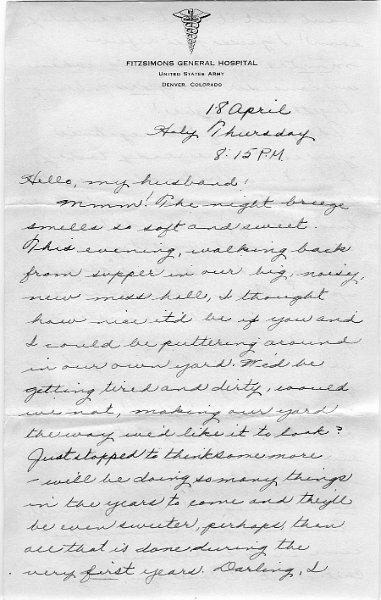 FITZSIMONS GENERAL HOSPITAL
UNITED STATES ARMY
DENVER, COLORADO
18 April
Holy Thursday
8:15 P.M.
Hello, my husband!
Mmm! The night breeze
smells so soft and sweet.
This evening, walking back
from supper in our big, noisy,
new mess hall, I thought
how nice it'd be if you and
I could be puttering around
in our own yard. We'd be
getting tired and dirty, would
we not, making our yard
the way we'd like it to look?
Just stopped to think some more
- will be doing so many things
in the years to come and they'll
be even sweeter, perhaps, than
all that is done during the
very first years. Darling, I